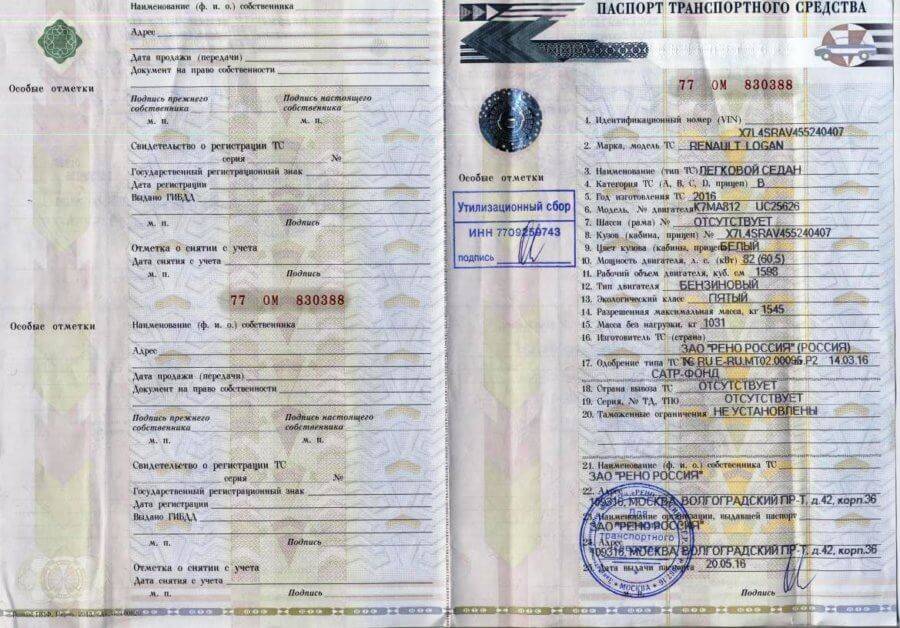 Наименование (ф. и. о.) собственника
Адрес
Дата продажи (передачи)
Документ на право собственности
Особые отметки
Подпись прежнего собственника
Подпись настоящего собственника
М. П.
М. П.
Свидетельство о регистрации ТС
серия №
Государственный регистрационный знак
Дата регистрации
Выдано ГИБДД
М. П. Подпись
Отметка о снятии с учета
Дата снятия с учета
М. П. Подпись
77 ОМ 830388
Особые отметки
Наименование (ф. и. о.) собственника
Адрес
Дата продажи (передачи)
Документ на право собственности
Подпись прежнего собственника
Подпись настоящего собственника
М. П.
М. П.
Свидетельство о регистрации ТС
серия №
Государственный регистрационный знак
Дата регистрации
Выдано ГИБДД
М. П. Подпись
Отметка о снятии с учета
Дата снятия с учета
М. П. Подпись
ПАСПОРТ ТРАНСПОРТНОГО СРЕДСТВА
77 ОМ 830388
Особые отметки
Утилизационный сбор
ИНН 7709259743
подпись
1. Идентификационный номер (VIN)
X7L4SRAV455240407
2. Марка, модель ТС RENAULT LOGAN
3. Наименование (тип ТС) ЛЕГКОВОЙ СЕДАН
4. Категория ТС (А, В, С, D, прицеп) B
5. Год изготовления ТС 2016
6. Модель, № двигателя K7MA812 UC25626
7. Шасси (рама) № ОТСУТСТВУЕТ
8. Кузов (кабина, прицеп) № X7L4SRAV455240407
9. Цвет кузова (кабины, прицепа) БЕЛЫЙ
10. Мощность двигателя, л. с. (кВт) 82 (60,5)
11. Рабочий объем двигателя, куб. см 1598
12. Тип двигателя БЕНЗИНОВЫЙ
13. Экологический класс ПЯТЫЙ
14. Разрешенная максимальная масса, кг 1545
15. Масса без нагрузки, кг 1031
16. Изготовитель ТС (страна)
ЗАО "РЕНО РОССИЯ" (РОССИЯ)
17. Одобрение типа ТС № ТС RU E-RU.MT02.00095.P2 14.03.16
САТР-ФОНД
18. Страна вывоза ТС ОТСУТСТВУЕТ
19. Серия, № ТД, ТПО ОТСУТСТВУЕТ
20. Таможенные ограничения НЕ УСТАНОВЛЕНЫ
21. Наименование (ф. и. о.) собственника ТС
ЗАО "РЕНО РОССИЯ"
22. Адрес
109316, МОСКВА, ВОЛГОГРАДСКИЙ ПР-Т, д.42, корп.36
23. Наименование организации, выдавшей паспорт
ЗАО "РЕНО РОССИЯ"
24. Адрес
109316, МОСКВА, ВОЛГОГРАДСКИЙ ПР-Т, д.42, корп.36
25. Дата выдачи паспорта 20.05.16
М. П. Подпись
Для
транспортного
МОСКВА